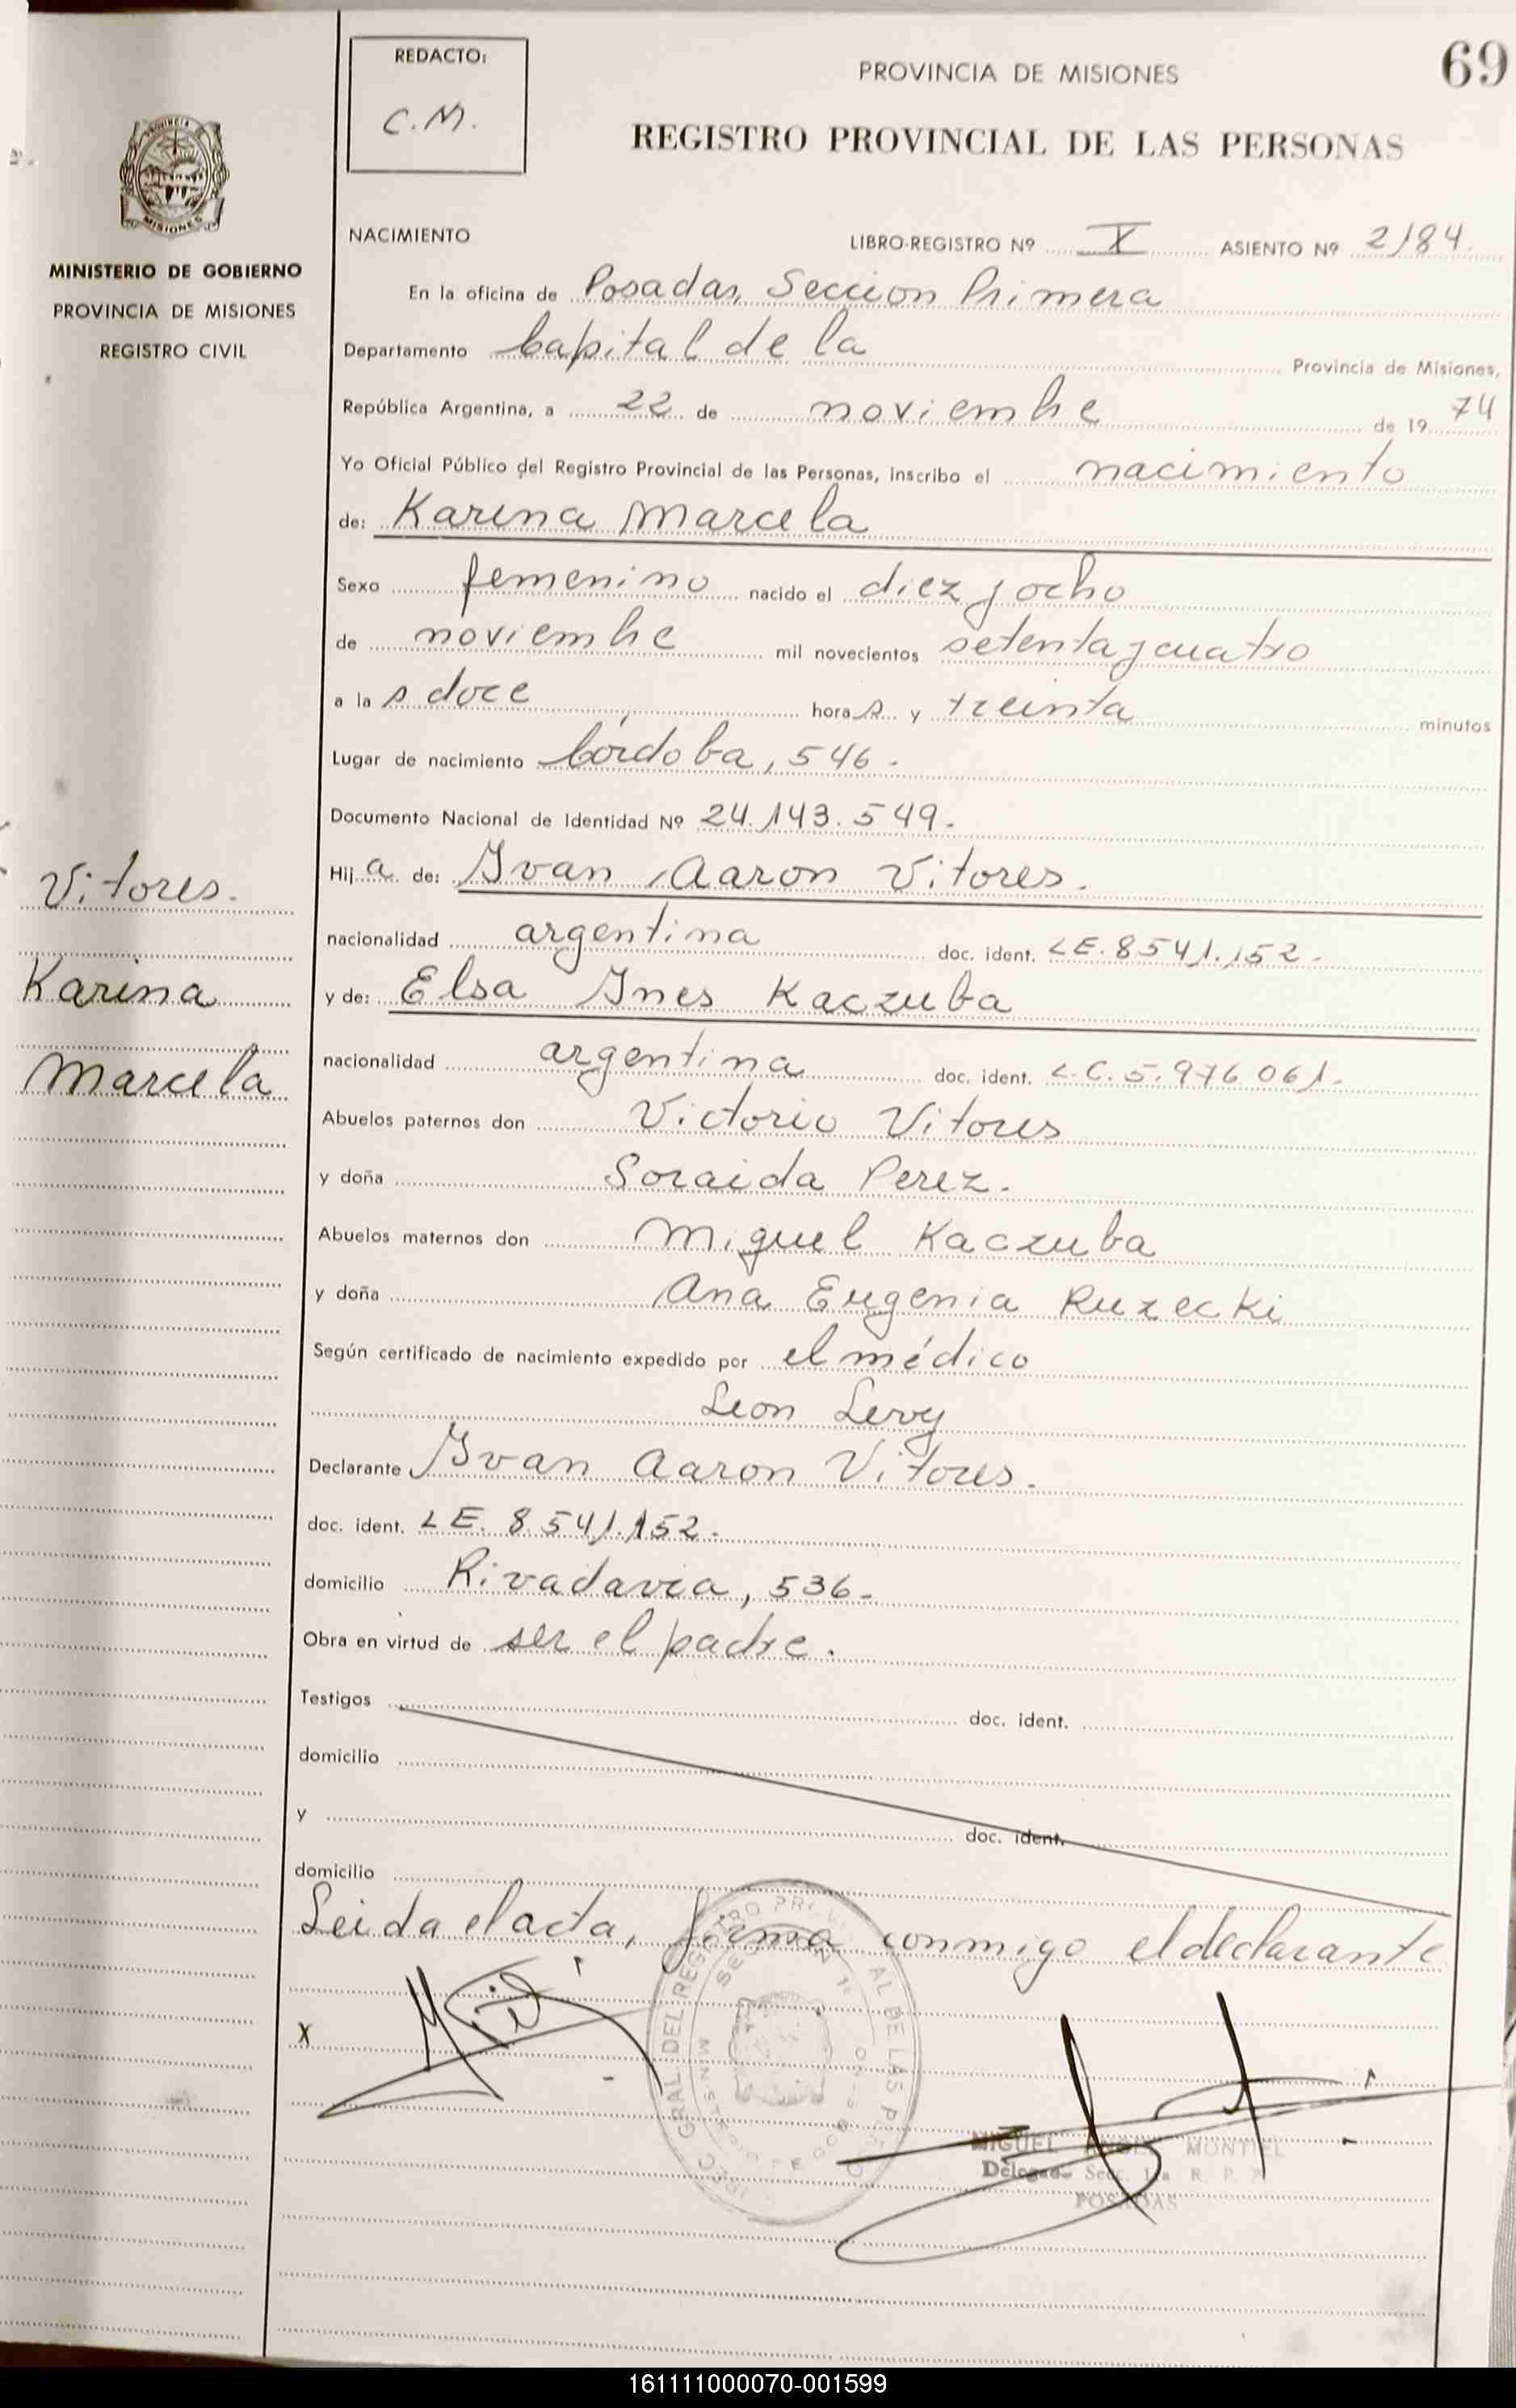 69
REDACTO:
C.M.
PROVINCIA DE MISIONES
REGISTRO PROVINCIAL DE LAS PERSONAS
MISIONES
MINISTERIO DE GOBIERNO
PROVINCIA DE MISIONES
REGISTRO CIVIL
NACIMIENTO LIBRO-REGISTRO Nº X ASIENTO Nº 2184.
En la oficina de Posadas, Seccion Primera
Departamento Capital de la Provincia de Misiones,
República Argentina, a 22 de noviembre de 1974
Yo Oficial Público del Registro Provincial de las Personas, inscribo el nacimiento
de: Karina Marcela
Sexo femenino nacido el diez y ocho
de noviembre mil novecientos setenta y cuatro
a las doce horas y treinta minutos
Lugar de nacimiento Córdoba, 546.
Documento Nacional de Identidad Nº 24.143.549.
Vitores.
Hija de: Ivan Aaron Vitores.
nacionalidad argentina doc. ident. LE. 8541.152.
Karina
y de: Elsa Ines Kaczuba
Marcela
nacionalidad argentina doc. ident. L.C. 5.976.061.
Abuelos paternos don Victorio Vitores
y doña Soraida Perez.
Abuelos maternos don Miguel Kaczuba
y doña Ana Eugenia Ruzecki
Según certificado de nacimiento expedido por el médico
Leon Levy
Declarante Ivan Aaron Vitores.
doc. ident. LE. 8.541.152.
domicilio Rivadavia, 536.
Obra en virtud de ser el padre.
Testigos doc. ident.
domicilio
y doc. ident.
domicilio
Leida el acta, firma conmigo el declarante
X
MIGUEL ANGEL MONTIEL
Delegado Secc. 1ra R. P. P.
POSADAS
161111000070-001599